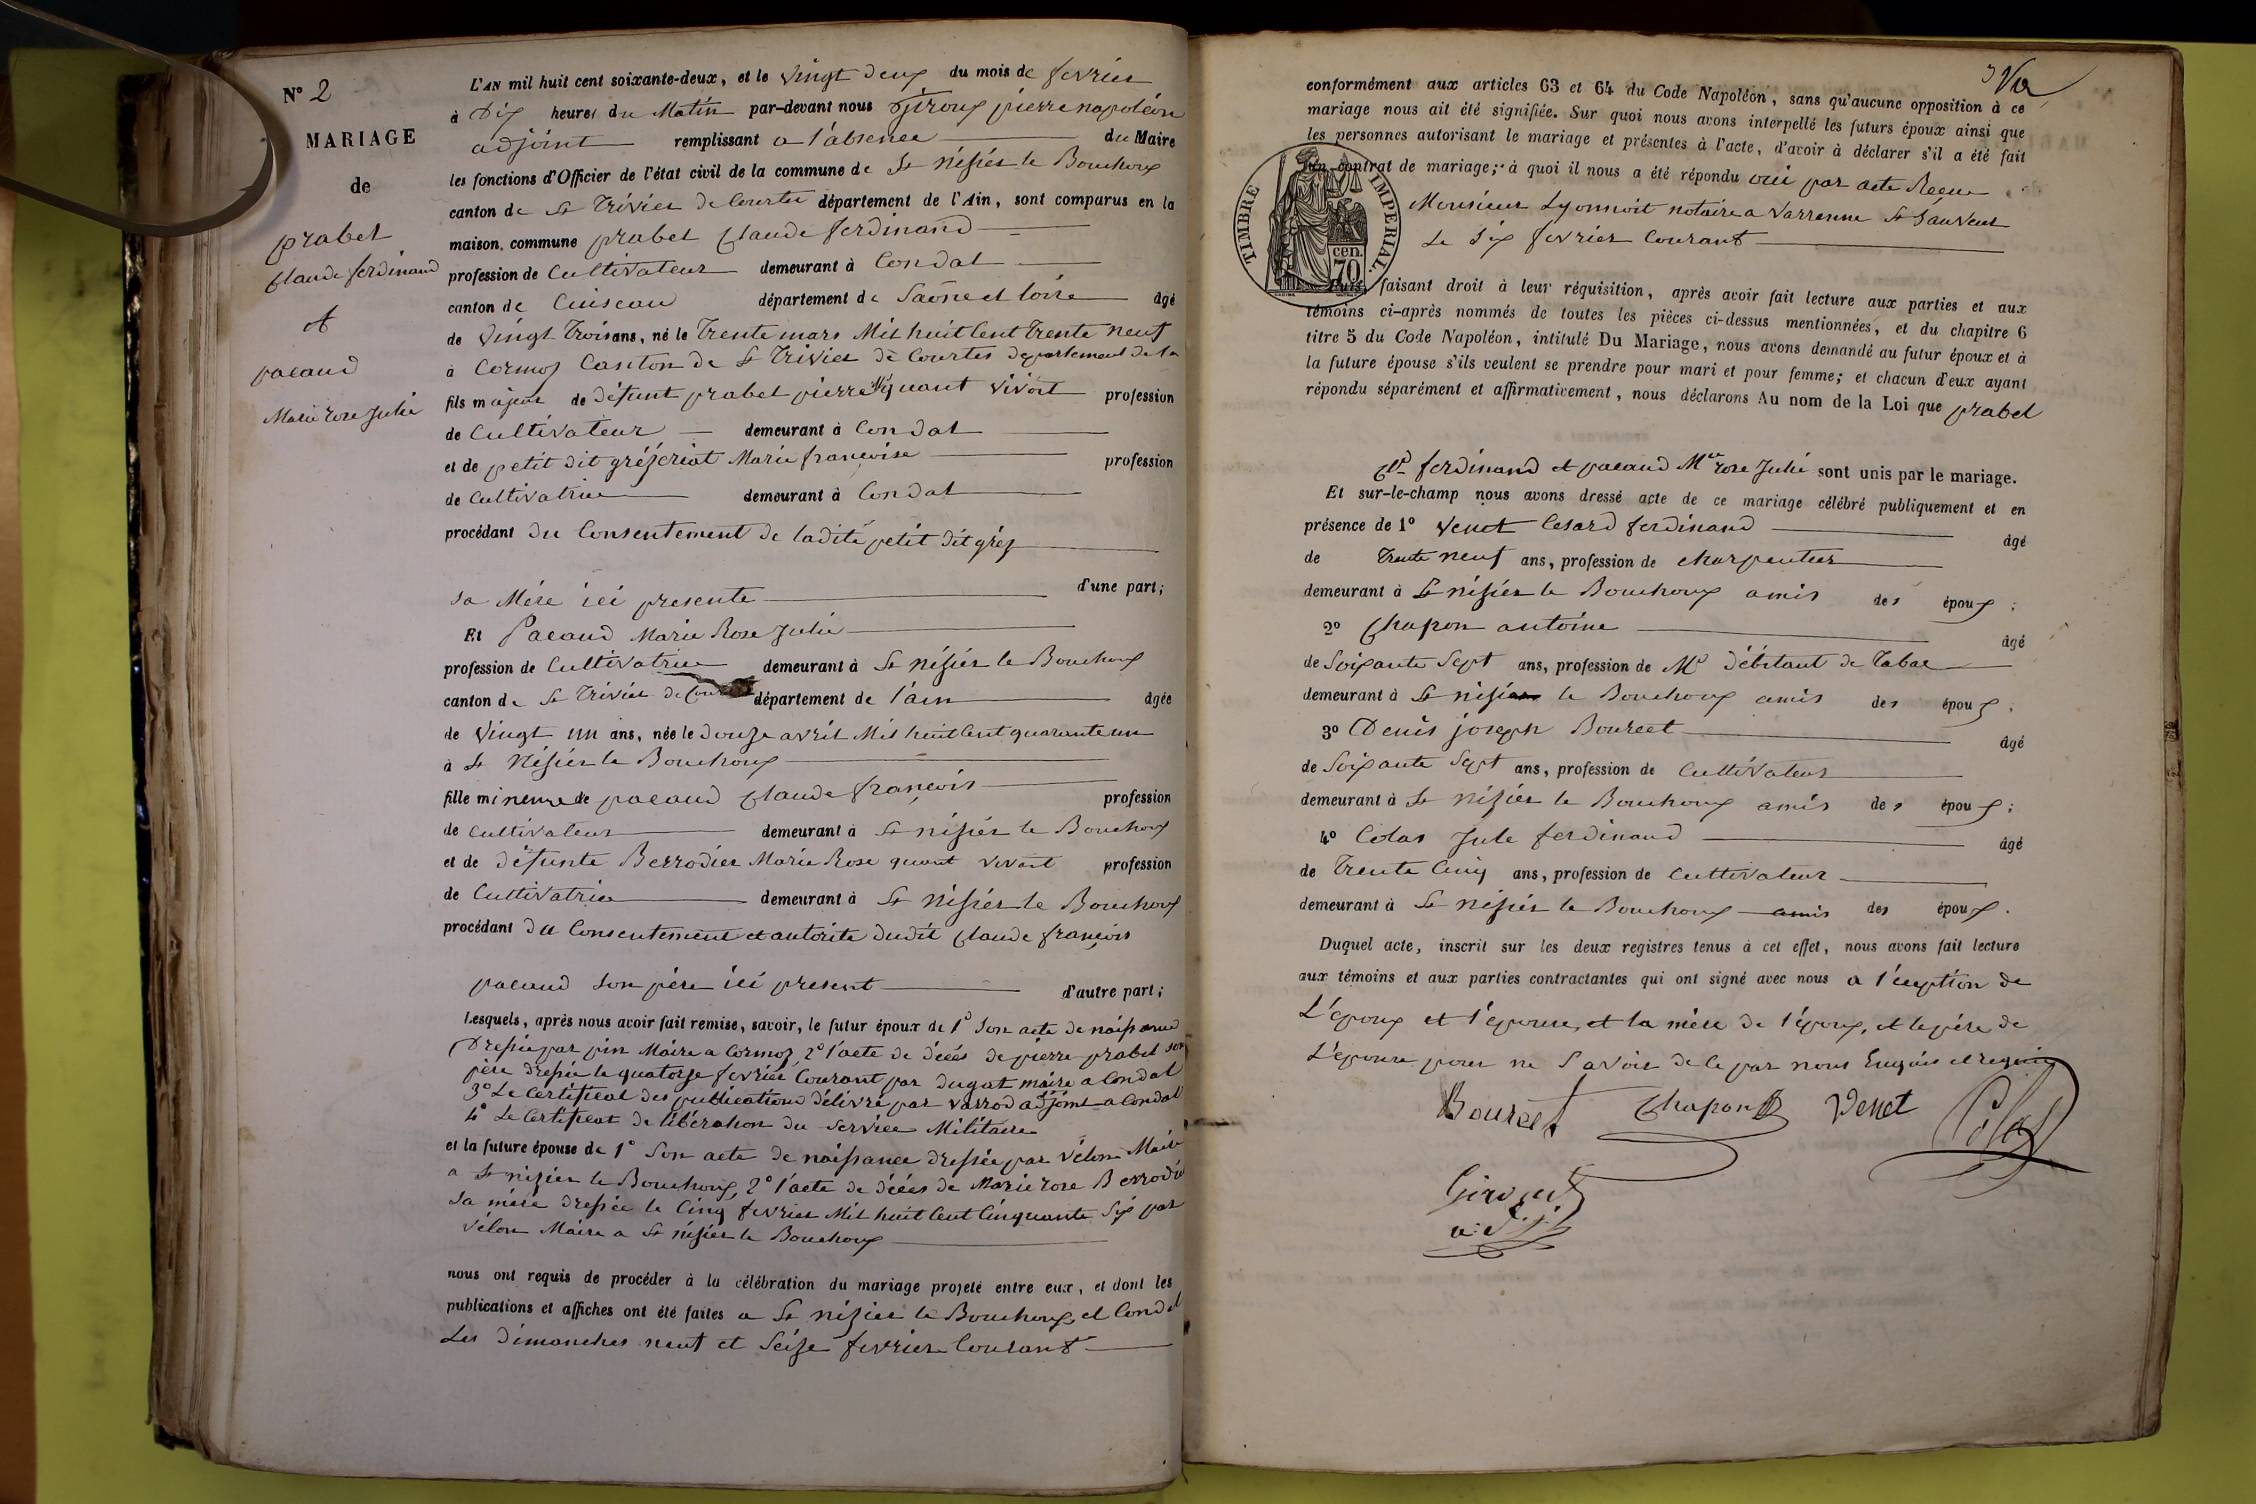 N° 2
MARIAGE
de
prabel
Claude ferdinand
et
pacaud
Marie rose Julie
L'AN mil huit cent soixante-deux, et le vingt deux du mois de fevrier
à Dix heures du Matin par-devant nous Giroux pierre napoléon
adjoint remplissant a l'absence du Maire
les fonctions d'Officier de l'état civil de la commune de St Nisier le Bouchoux
canton de St Trivier de Courtes département de l'Ain, sont comparus en la
maison commune prabel Claude ferdinand
profession de Cultivateur demeurant à Condal
canton de Cuiseau département de Saône et loire âgé
de Vingt Trois ans, né le Trente mars Mil huit Cent Trente neuf
à Cormoz Canton de St Trivier de Courtes departement de l'a
fils majeur de défunt prabel pierre quant vivoit profession
de Cultivateur demeurant à Condal
et de petit dit gréjcriat Marie françoise profession
de Cultivatrice demeurant à Condal
procédant du Consentement de ladite petit dit gréj
sa Mére ici presente d'une part;
Et Pacaud Marie Rose Julie
profession de Cultivatrice demeurant à St nésiér le Bouchoux
canton de St Trivier de Cour département de l'ain âgée
de Vingt un ans, née le douze avril Mil huit Cent quarante un
à St Nésiér le Bouchoux
fille mineure de pacaud Claude françois profession
de Cultivateur demeurant à St nisiér le Bouchoux
et de défunte Berrodier Marie Rose quant vivait profession
de Cultivatrice demeurant à St Nisiér le Bouchoux
procédant du Consentement et autorite dudit Claude françois
pacaud son pére ici present d'autre part;
Lesquels, après nous avoir fait remise, savoir, le futur époux de 1° Son acte de naissance
Dressée par pin Maire a Cormoz, 2° l'acte de décés de pierre prabel son
pére dressée le quatorze fevrier Courant par dugat maire a Condal
3° Le Certificat des publications délivré par varrod adjoint a Condal
4° Le Certificat de libération du Service Militaire
et la future épouse de 1° Son acte de naissance dressée par Vélon Maire
a St nizier le Bouchoux, 2° l'acte de décés de Marie rose Berrodier
sa mére dressée le Cinq fevrier Mil huit Cent Cinquante Six par
Vélon Maire a St nisier le Bouchoux
nous ont requis de procéder à la célébration du mariage projeté entre eux, et dont les
publications et affiches ont été faites a St nizier le Bouchoux, et Condal
Les dimanches neuf et Seize fevrier Courant
conformément aux articles 63 et 64 du Code Napoléon, sans qu'aucune opposition à ce
mariage nous ait été signifiée. Sur quoi nous avons interpellé les futurs époux ainsi que
les personnes autorisant le mariage et présentes à l'acte, d'avoir à déclarer s'il a été fait
un contrat de mariage; à quoi il nous a été répondu oui par acte Recu
Monsieur Lyonnoit notaire a Varenne St Sauveur
Le Six fevrier Courant
TIMBRE IMPERIAL.
cen.
70
Puis, faisant droit à leur réquisition, après avoir fait lecture aux parties et aux
témoins ci-après nommés de toutes les pièces ci-dessus mentionnées, et du chapitre 6
titre 5 du Code Napoléon, intitulé Du Mariage, nous avons demandé au futur époux et à
la future épouse s'ils veulent se prendre pour mari et pour femme; et chacun d'eux ayant
répondu séparément et affirmativement, nous déclarons Au nom de la Loi que prabel
Cde ferdinand et pacaud Mie rose Julie sont unis par le mariage.
Et sur-le-champ nous avons dressé acte de ce mariage célébré publiquement et en
présence de 1° Venet Cesard ferdinand âgé
de Trente neuf ans, profession de charpentier
demeurant à St nisiér le Bouchoux amis des époux;
2° Chapon antoine âgé
de Soixante Sept ans, profession de Md débitant de Tabac
demeurant à St nisier le Bouchoux amis des époux;
3° Denis joseph Bourcet âgé
de Soixante Sept ans, profession de Cultivateur
demeurant à St nizier le Bouchoux amis des époux;
4° Colas Jule ferdinand âgé
de Trente Cinq ans, profession de Cultivateur
demeurant à St nésier le Bouchoux amis des époux.
Duquel acte, inscrit sur les deux registres tenus à cet effet, nous avons fait lecture
aux témoins et aux parties contractantes qui ont signé avec nous a l'éception de
L'époux et l'épouse, et la mére de l'époux, et le pére de
L'épouse pour ne Savoir de ce par nous Enquis et requis
Bourcet Chapon Venet Colas
Giroux
adj.